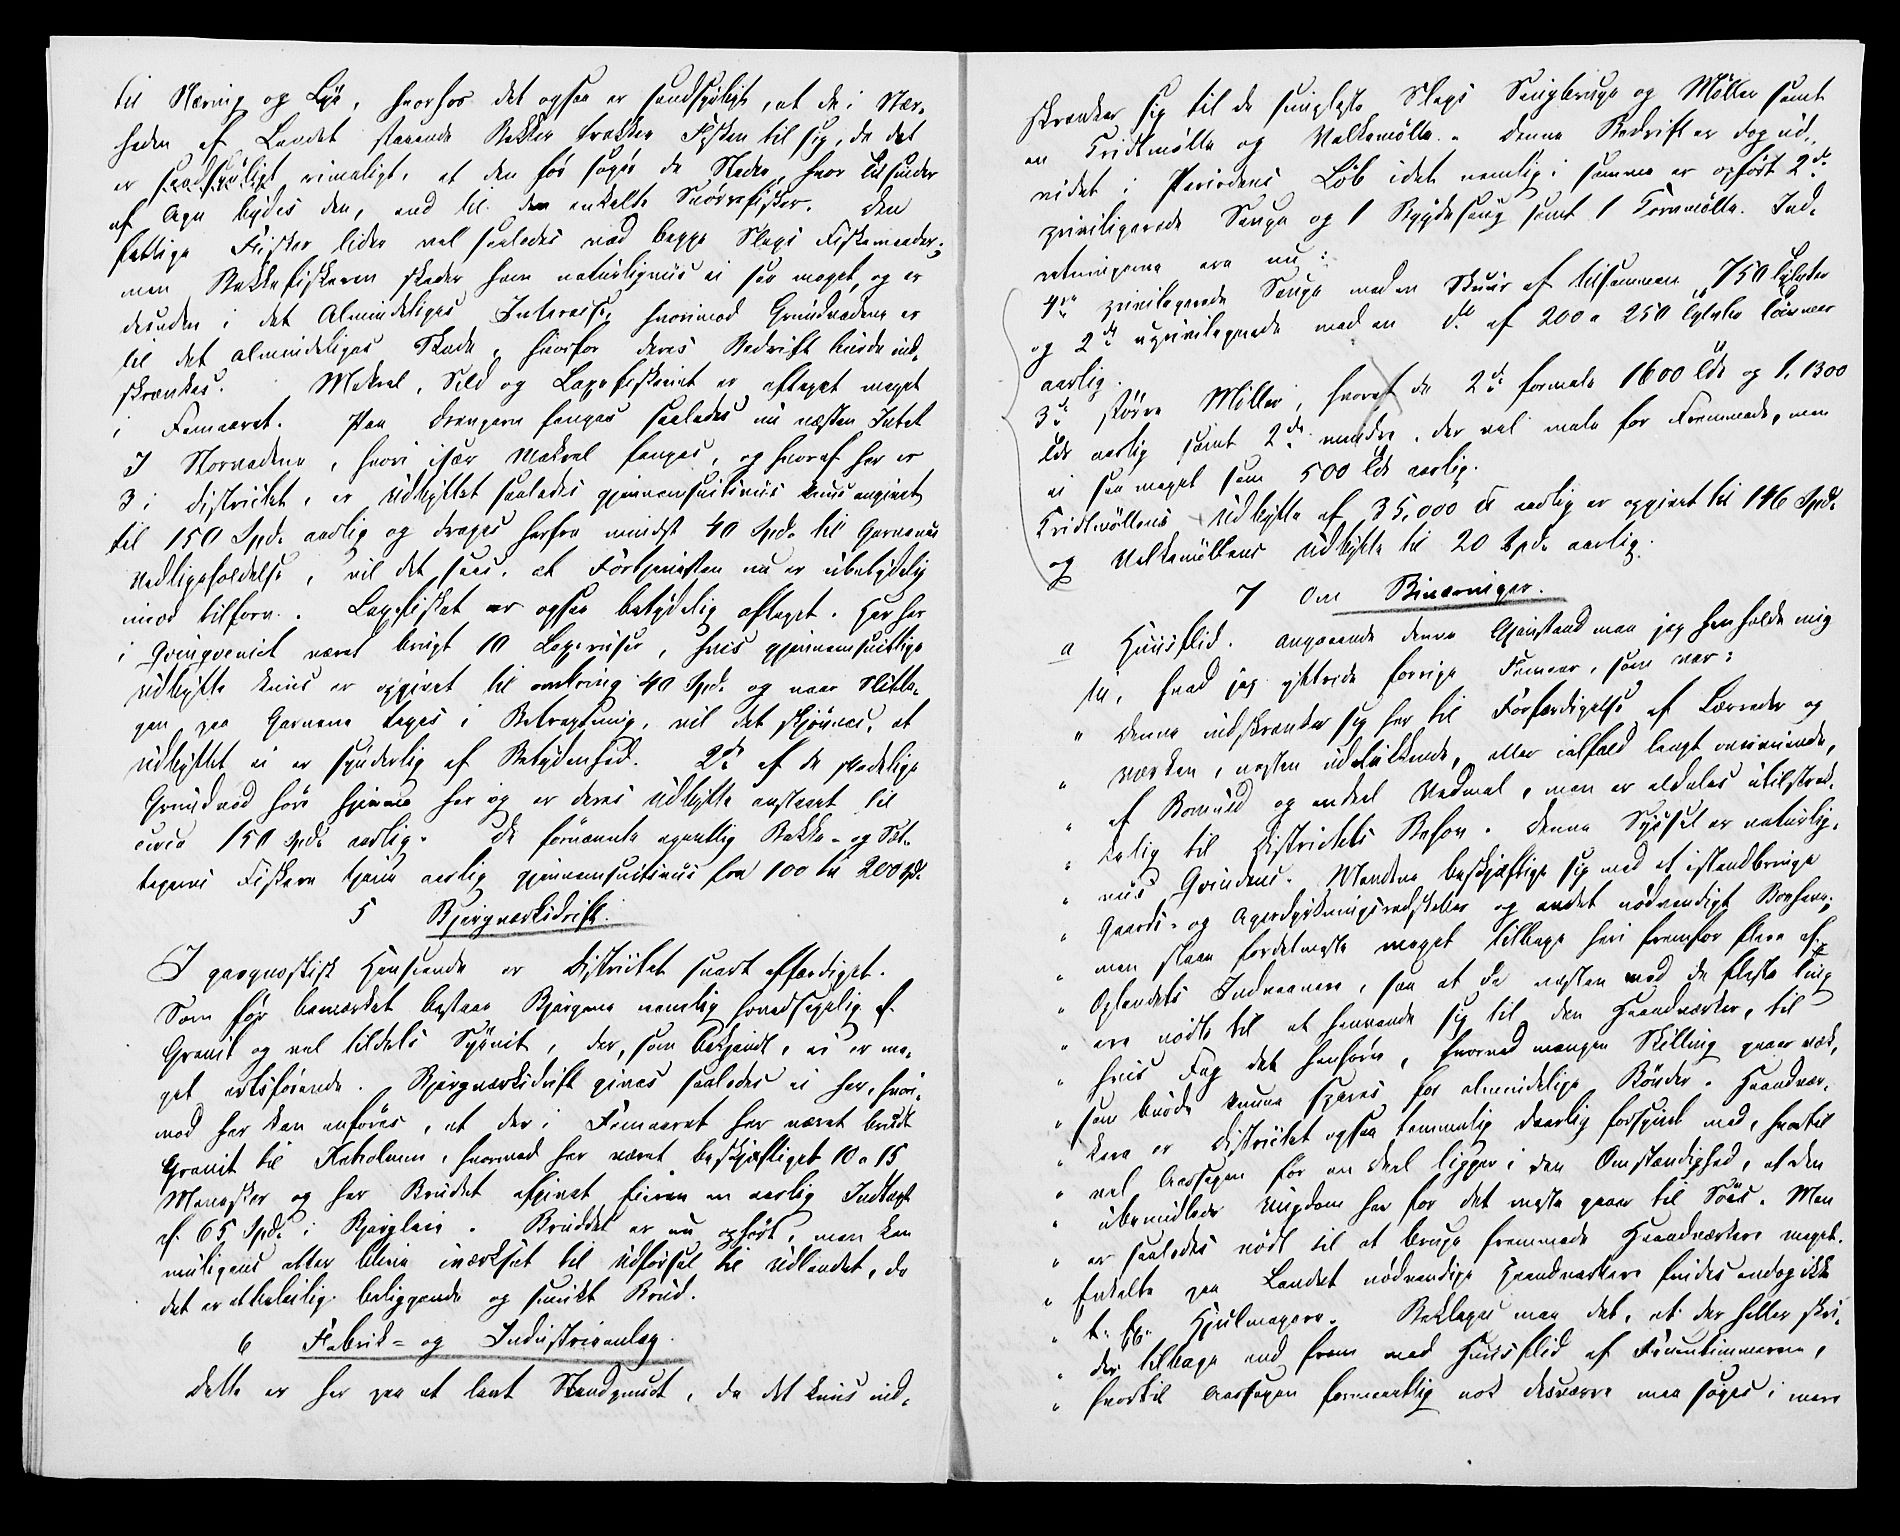 til Næring og Lye, hvorhos det ogsaa er sandsynligt, at de i Nær-
heden af Landet staaende Bakker trækker Fisken til sig, da det
er sandsynligt rimeligt, at den før søger de Steder, hvor tusinder
af Agn bydes den, end til den enkelte Snørefisker. Den
fattige Fisker lider vel saaledes ved begge Slags Fiskemaader;
men Bakkefiskeren skader ham naturligviis ei saa meget, og er
desuden i det Almindeliges Interesse, hvorimod Grundvadene er
til det almindeliges Skade, hvorfor deres Bedrift burde ind-
skrænkes. Makrel, Sild og Laxefiskeriet er aftaget meget
i Femaaret. Paa Drengene fanges saaledes nu næsten Intet
I Norvadene, hvori især Makrel fanges, og hvoraf her er
3 i Districtet, er Udbyttet saaledes gjennemsnitsviis kuns angivet
til 150 Spd. aarlig og drages herfra mindst 40 Spd. til Garnenes
Vedligeholdelse, vil det sees, at Fortjenesten nu er ubetydelig
imod tilforn. Laxefisket er ogsaa betydelig aftaget. Her har
i været brugt 10 Laxeruser, hvis gjennemsnitlige
Udbytte kuns er opgivet til omkring 40 Spd. og naar Slitta-
gen paa Garnene tages i Betragtning, vil det skjønnes, at
Udbyttet ei er synderlig af Betydenhed. 2de af de skadelige
Grundvad høre hjemme her og er deres Udbytte ansat til
circa 150 Spd. aarlig. De fornævnte egentlig Bakke- og
Fiskere tjene aarlig gjennemsnitsviis fra 100 til 200 Spd.
5 Bjergværksdrift.
I geognostisk Henseende er Districtet snart affærdiget.
Som før bemærket bestaar Bjergene nemlig hovedsagelig af
Granit og vel tildels Syenit, der, som bekjendt, ei er me-
get ertsførende. Bjergværksdrift gives saaledes ei her, hvori-
mod her kan anføres, at der i Femaaret har været brudt
Granit til Kaholmen, hvormed har været beskjæftiget 10 a 15
Mennesker og har Bruddet afgivet Eieren en aarlig Indtægt
af 65 Spd. i Bjergleie. Bruddet er nu ophørt, men kan
muligens atter blive iværksat til Udførsel til Udlandet, da
det er et beleilig beliggende og smukt Brud.
6 Fabrik- og Industrieanlæg.
Dette er her paa et lavt Standpunct, da det kuns ind-
skrænker sig til de simpleste Slags Saugbruge og Møller samt
en Kridtmølle og Valkemølle. Denne Bedrift er dog ud-
videt i Periodens Løb idet nemlig i samme er opført 2de
priviligerede Sauge og 1 Bygdesaug samt 1 Kornmølle. Ind-
retningerne ere nu:
4re privilegerede Sauge med en Skuur af tilsammen 750 Tylvter
og 2de uprivilegerede med en do af 200 a 250 Tylvter Tømmer
aarlig.
3de større Møller, hvoraf de 2de formale 1600 Tdr og 1, 1300
Tdr aarlig samt 2de mindre, der vel male for Fremmede, men
ei saa meget som 500 Tdr aarlig.
Kridtmøllens Udbytte af 35,000 ℔ aarlig er opgivet til 146 Spd.
og Valkemøllens Udbytte til 20 Spd. aarlig.
7 Om Binæringer.
a Huusflid. Angaaende denne Gjenstand maa jeg henholde mig
til, hvad jeg yttrede forrige Femaar, som var:
" Denne indskrænker sig her til Forfærdigelse af Lærreder og
" Værken, næsten udelukkende, eller ialfald langt overveiende,
" af Bomuld og endeel Vadmel, men er aldeles utilstræk-
" kelig til Districtets Behov. Denne Syssel er naturlig-
" viis Qvindens. Mændene beskjæftige sig med at istandbringe
" Gaards- og Agerdyrkningsredskaber og andet nødvendigt Boehave;
" men staae fordetmeste meget tilbage heri fremfor flere af
" Oplandets Indvaanere, saa at de næsten med de fleste Ting
" ere nødte til at henvende sig til den Haandværker, til
" hvis Fag det henhører, hvorved mangen Skilling gaaer væk,
" som burde kunne spares for almindelige Bønder. Haandvær-
" kere er Districtet ogsaa temmelig daarlig forsynet med, hvortil
" vel Aarsagen for en Deel ligger i den Omstændighed, at den
" ubemidlede Ungdom her for det meste gaaer til Søes. Man
" er saaledes nødt til at bruge fremmede Haandværkere meget.
" Enkelte paa Landet nødvendige Haandværkere findes endog ikke
" t. Ex. Hjulmagere. Beklages maa det, at der heller skri-
" der tilbage end frem med Huusflid af Fruentimmerne,
" hvortil Aarsagen formeentlig nok desværre maa søges i mere